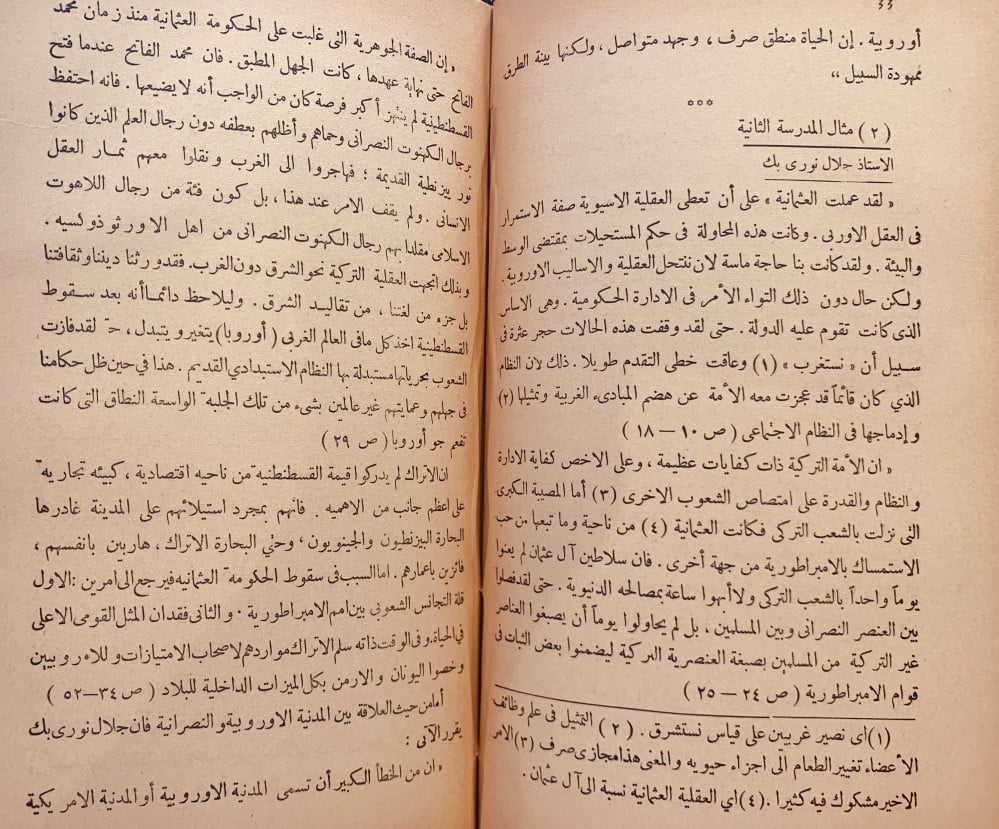 أوروبية . إن الحياة منطق صرف ، وجهد متواصل ، ولكنها بينة الطرق
ممهودة السبيل ،،
***
( ٢ ) مثال المدرسة الثانية
الاستاذ جلال نورى بك
« لقد عملت العثمانية » على أن تعطى العقلية الاسيوية صفة الاستمرار
فى العقل الاوربى . وكانت هذه المحاولة فى حكم المستحيلات بمقتضى الوسط
والبيئة . ولقد كانت بنا حاجة ماسة لان ننتحل العقلية والاساليب الاوروبية .
ولكن حال دون ذلك التواء الأمر فى الادارة الحكومية . وهى الاساس
الذى كانت تقوم عليه الدولة . حتى لقد وقفت هذه الحالات حجر عثرة فى
سبيل أن « نستغرب » (١) وعاقت خطى التقدم طويلا . ذلك لان النظام
الذي كان قائماً قد عجزت معه الأمة عن هضم المبادىء الغربية وتمثيلها (٢)
وإدماجها فى النظام الاجتماعى ( ص ١٠ — ١٨ )
« ان الأمة التركية ذات كفايات عظيمة ، وعلى الاخص كفاية الادارة
والنظام والقدرة على امتصاص الشعوب الاخرى (٣) أما المصيبة الكبرى
التى نزلت بالشعب التركى فكانت العثمانية (٤) من ناحية وما تبعها من حب
الاستمساك بالامبراطورية من جهة أخرى . فان سلاطين آل عثمان لم يعنوا
يوماً واحداً بالشعب التركى ولا أبهوا ساعة بمصالحه الدنيوية . حتى لقد فصلوا
بين العنصر النصرانى وبين المسلمين ، بل لم يحاولوا يوماً أن يصبغوا العناصر
غير التركية من المسلمين بصبغة العنصرية التركية ليضمنوا بعض الثبات فى
قوام الامبراطورية ( ص ٢٤ — ٢٥ )
(١) اى نصير غربيين على قياس نستشرق . ( ٢ ) التمثيل فى علم وظائف
الأعضاء تغيير الطعام الى اجزاء حيويه والمعنى هذا مجازى صرف (٣) الامر
الاخير مشكوك فيه كثيرا . (٤) اي العقلية العثمانية نسبة الى آل عثمان .
« إن الصفة الجوهرية التى غلبت على الحكومة العثمانية منذ زمان محمد
الفاتح حتى نهاية عهدها ، كانت الجهل المطبق . فان محمد الفاتح عندما فتح
القسطنطينية لم ينتهز أكبر فرصة كان من الواجب أنه لا يضيعها . فانه احتفظ
برجال الكهنوت النصرانى وحماهم وأظلهم بعطفه دون رجال العلم الذين كانوا
نور بيزنطية القديمة ؛ فهاجروا الى الغرب ونقلوا معهم ثمار العقل
الانسانى . ولم يقف الامر عند هذا ، بل كون فئة من رجال اللاهوت
الاسلامى مقلدا بهم رجال الكهنوت النصرانى من اهل الاورثوذولسيه .
وبذلك اتجهت العقلية التركية نحو الشرق دون الغرب. فقد ورثنا ديننا وثقافتنا
بل جزء من لغتنا ، من تقاليد الشرق . وليلاحظ دائماً أنه بعد سقوط
القسطنطينية اخذ كل مافى العالم الغربى ( أوروبا ) يتغير ويتبدل ، حتى لقد فازت
الشعوب بحرياتها مستبدلة بها النظام الاستبدادي القديم . هذا فى حين ظل حكامنا
فى جهلهم وعمايتهم غير عالمين بشىء من تلك الجلبة الواسعة النطاق التى كانت
تفعم جو أوروبا ( ص ٢٩ )
ان الاتراك لم يدركوا قيمة القسطنطينية من ناحيه اقتصادية ، كبيئه تجاريه
على اعظم جانب من الاهميه . فانهم بمجرد استيلائهم على المدينة غادرها
البحارة البيزنطيون والجينويون ، وحتى البحارة الاتراك ، هاربين بانفسهم ،
فائزين باعمارهم . اما السبب فى سقوط الحكومة العثمانيه فيرجع الى امرين : الاول
قلة التجانس الشعوبى بين امم الامبراطورية . والثانى فقدان المثل القومى الاعلى
فى الحياة. وفى الوقت ذاته سلم الاتراك مواردهم لاصحاب الامتيازات وللاروبيين
وخصوا اليونان والارمن بكل الميزات الداخلية للبلاد ( ص ٣٤—٥٢ )
أما من حيث العلاقة بين المدنية الاوروبية والنصرانية فان جلال نورى بك
يقرر الآتى :
« ان من الخطأ الكبير أن تسمى المدنية الاوروبية أو المدنية الامريكية